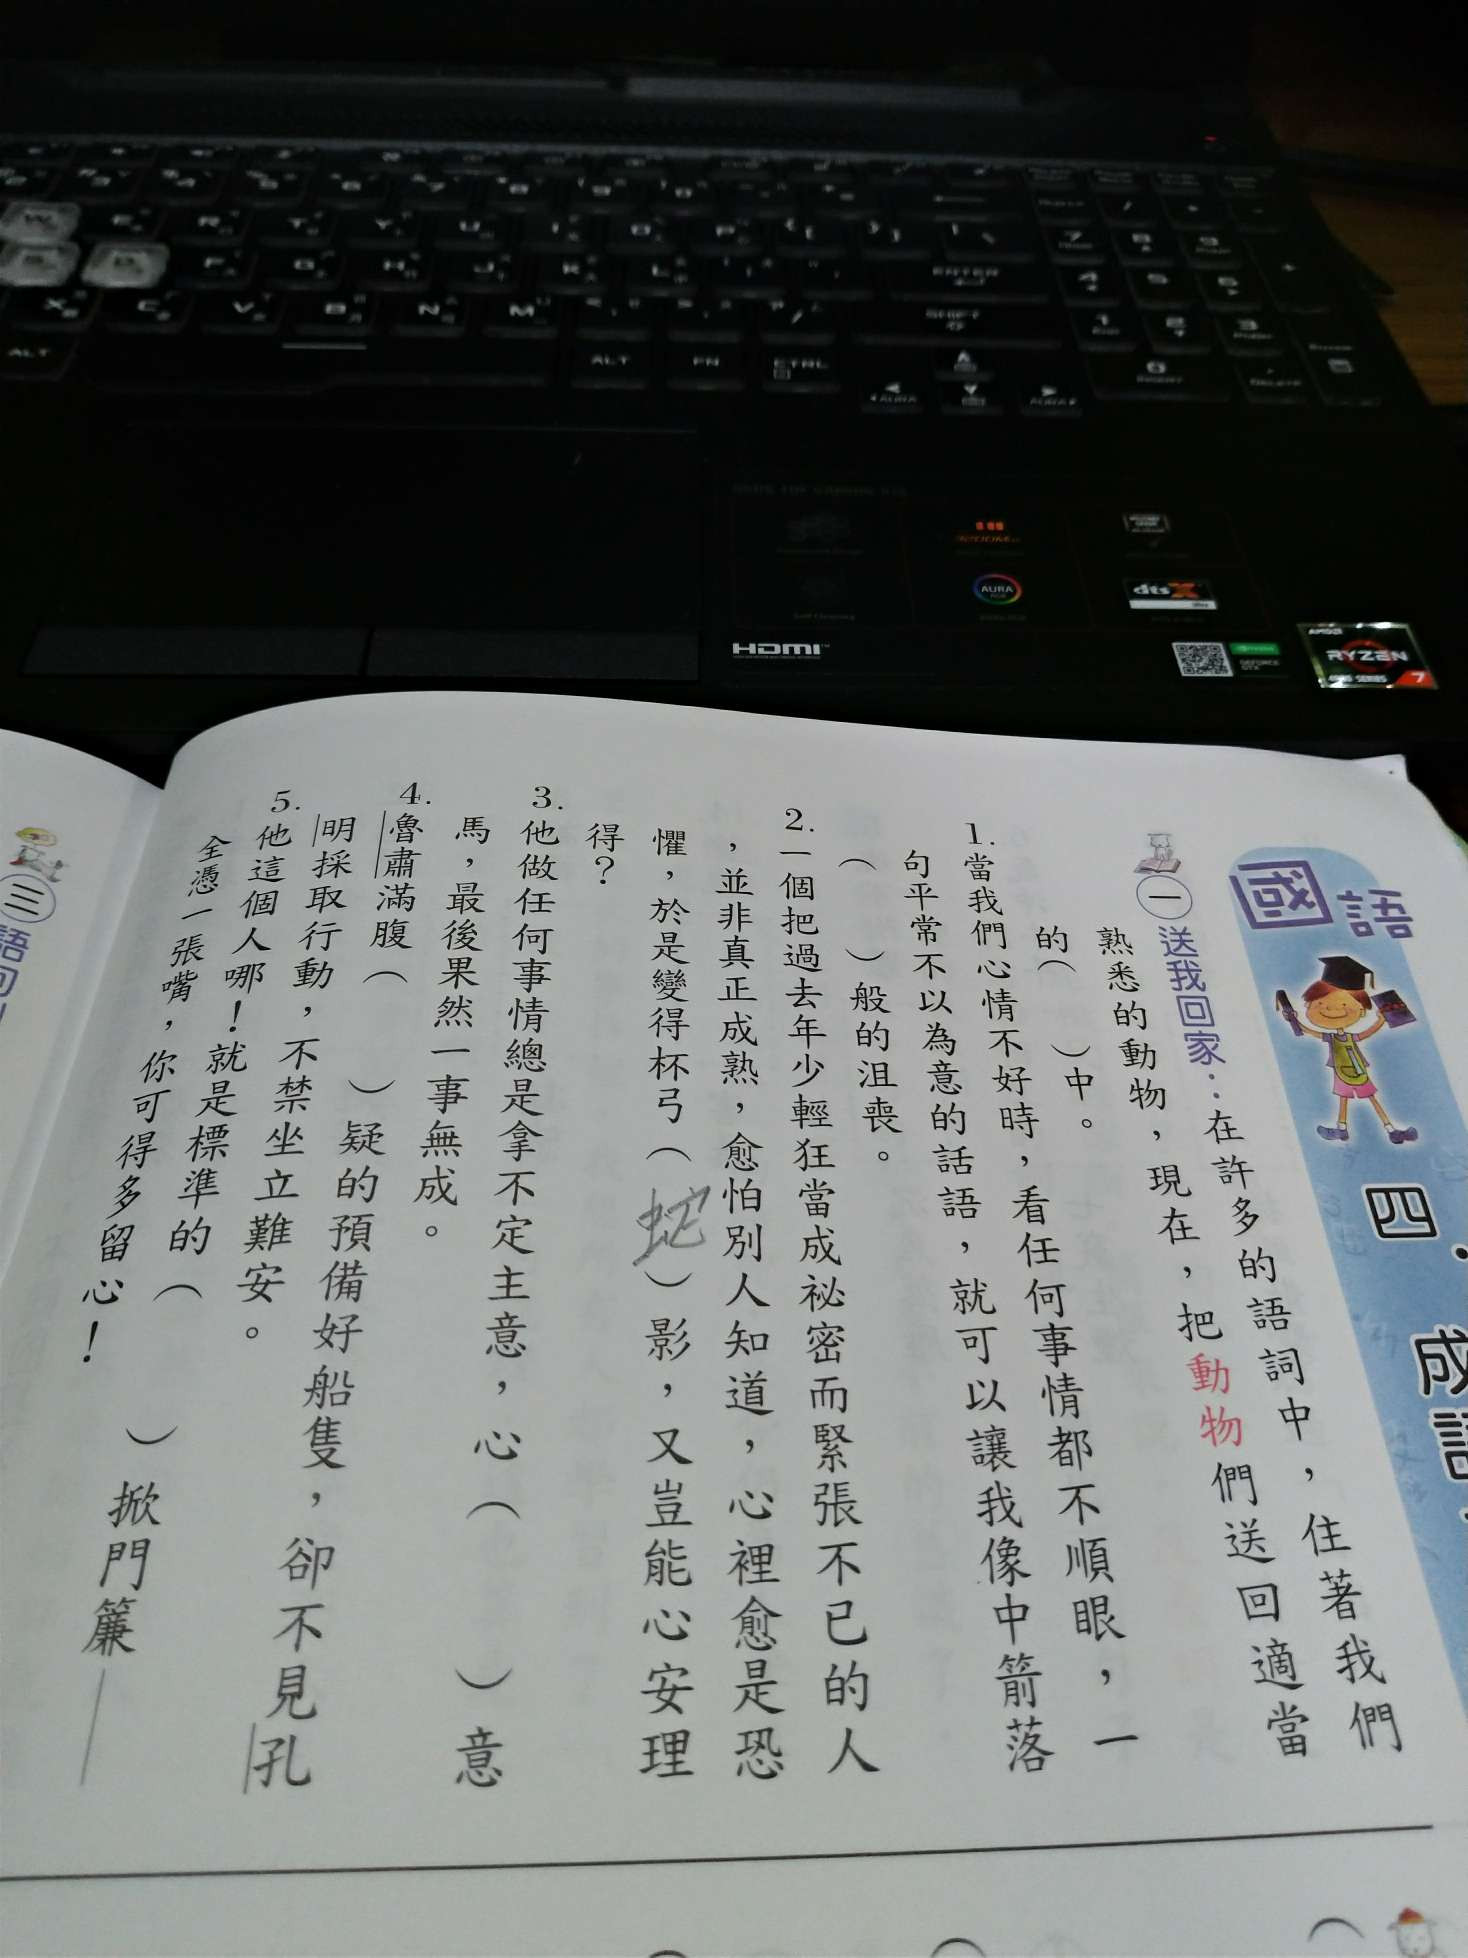 國語
四.成語
一 送我回家：在許多的語詞中，住著我們
熟悉的動物，現在，把動物們送回適當
的（ ）中。
1.當我們心情不好時，看任何事情都不順眼，一
句平常不以為意的話語，就可以讓我像中箭落
（ ）般的沮喪。
2.一個把過去年少輕狂當成祕密而緊張不已的人
，並非真正成熟，愈怕別人知道，心裡愈是恐
懼，於是變得杯弓（蛇）影，又豈能心安理
得？
3.他做任何事情總是拿不定主意，心（ ）意
馬，最後果然一事無成。
4.魯肅滿腹（ ）疑的預備好船隻，卻不見孔
明採取行動，不禁坐立難安。
5.他這個人哪！就是標準的（ ）掀門簾——
全憑一張嘴，你可得多留心！
三 語
W E R T Y U I O P
F G H J K L ENTER
X C V B N M SHIFT
ALT ALT FN CTRL
7 8 9
4 5 6
1 2 3
AURA AURA
0 DELETE
AURA
dts X
HDMI
GEFORCE GTX
AMD RYZEN 7